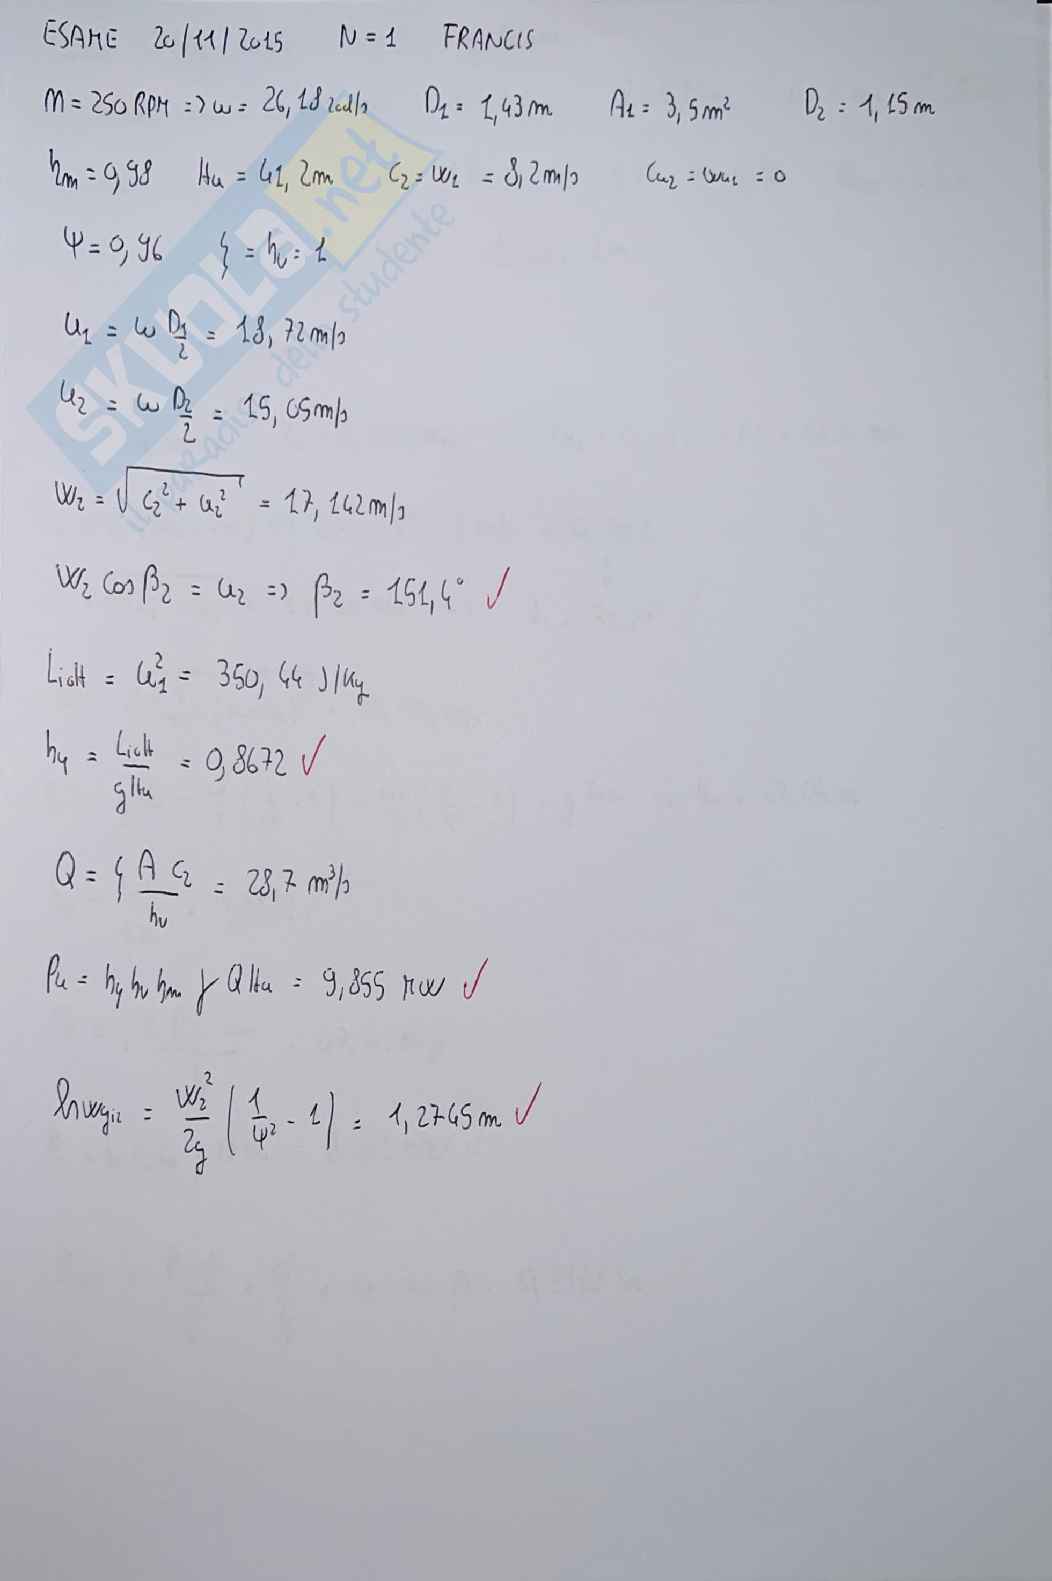 ESAME 20/11/2015 N=1 FRANCIS
n = 250 RPM => ω = 26,18 rad/s D1 = 1,43 m A1 = 3,5 m² D2 = 1,15 m
hm = 0,98 Hu = 41,2 m C2 = w1 = 8,2 m/s Cu2 = wu1 = 0
Ψ = 0,96 ξ = hv = 1
u1 = ω D1/2 = 18,72 m/s
u2 = ω D2/2 = 15,05 m/s
W2 = √(C2² + u2²) = 17,142 m/s
W2 cos β2 = u2 => β2 = 151,4° ✓
Lidt = u1² = 350,44 J/kg
hy = Lidt/gHu = 0,8672 ✓
Q = ξ A C2/hv = 28,7 m³/s
Pu = hy hv hm γ Q Hu = 9,855 MW ✓
hwgiz = W2²/2g (1/Ψ² - 1) = 1,2745 m ✓
SKUOLA.net
il paradiso dello studente